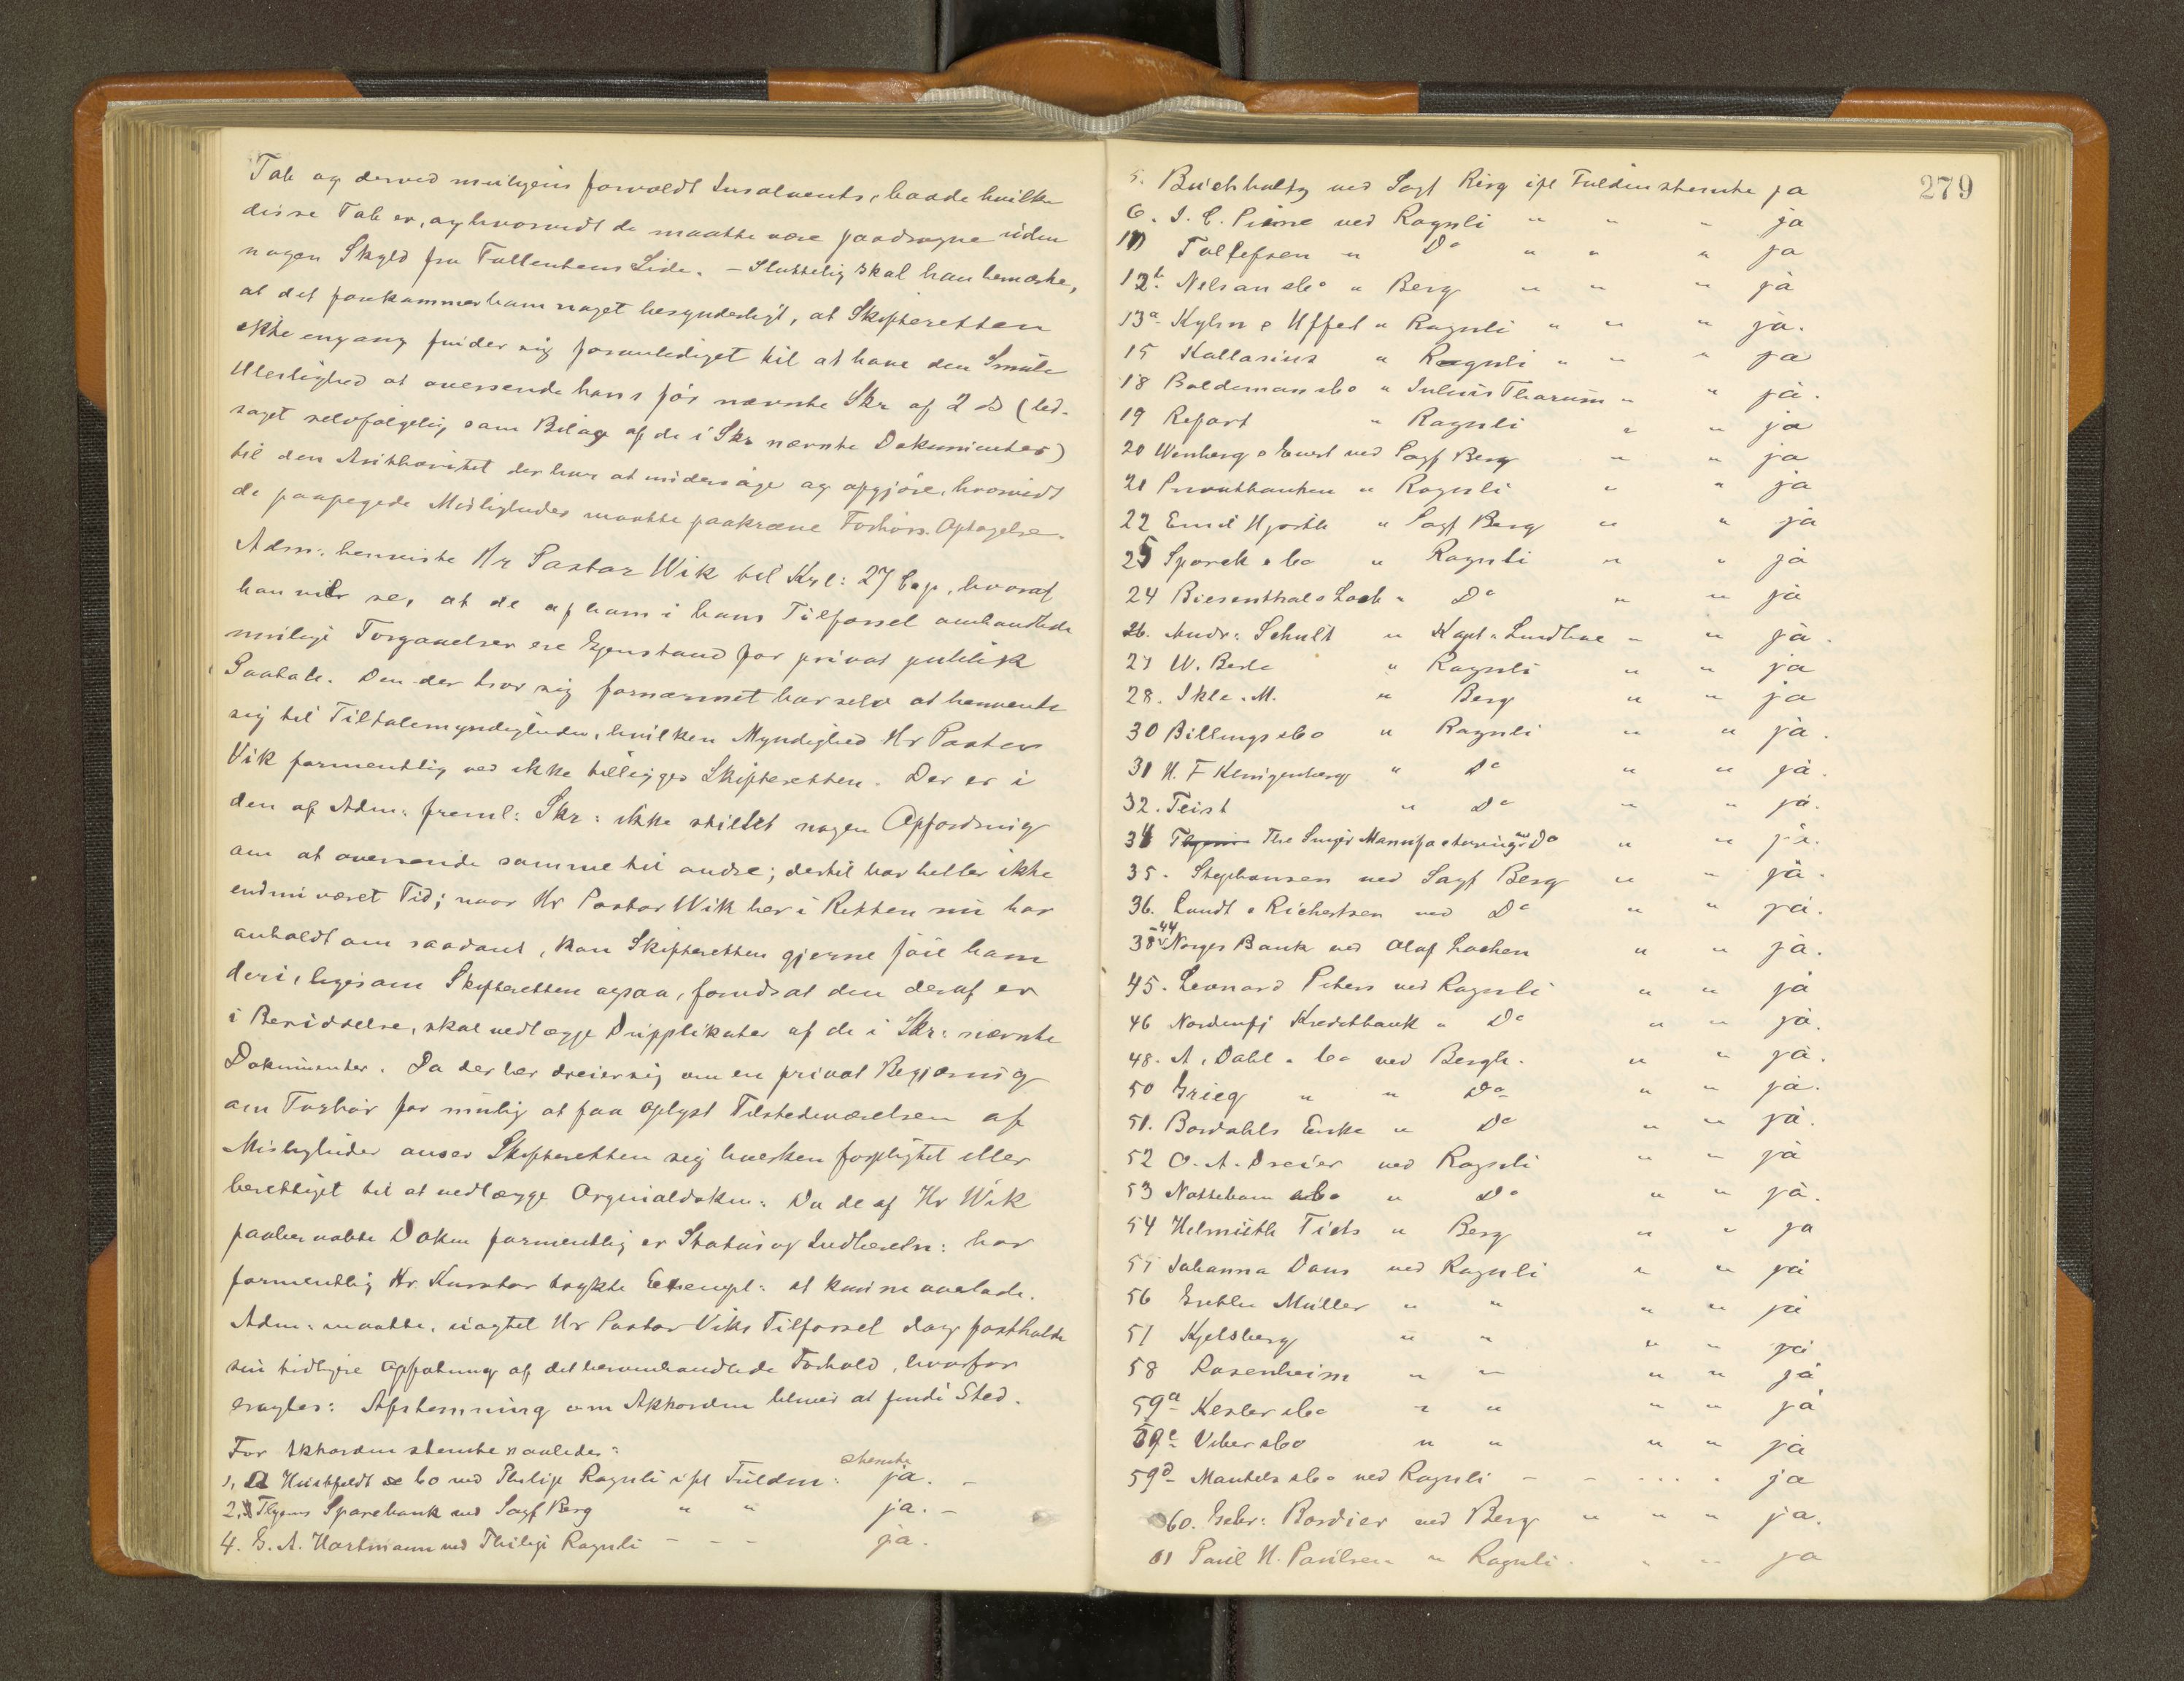 Tab og derved muligens forvoldt Insolvents, baade hvilke
disse Tab er, og hvorvidt de maatte være paadragne uden
nogen Skyld fra Fallentens Side. – Sluttelig skal han bemærke,
at det forekommer ham noget besynderligt, at Skifteretten
ikke engang finder sig foranlediget til at have den Smule
Uleilighed at oversende hans før nævnte Skr af 2 ds (led-
saget selvfølgelig som Bilag af de i Skr nævnte Dokumenter)
til den Authoritet der har at undersøge og afgjøre, hvorvidt
de paapegede Misligheder maatte paakræve Forhørs. Optagelse.
Adm: henviste Hr Pastor Wik til Krl: 27 Cap, hvoraf
han vil se, at de af ham i hans Tilførsel omhandlede
mulige Forgaaelser ere Gjenstand for privat publisk
Paatale. Den der tror sig fornærmet har selv at henvende
sig til Tiltalemyndigheden, hvilken Myndighed Hr Pastor
Vik formentlig ved ikke tillægges Skifteretten. Der er i
den af Adm: freml: Skr: ikke stillet nogen Opfordring
om at oversende samme til andre; dertil har heller ikke
endnu været Tid; naar Hr Pastor Wik her i Retten nu har
anholdt om saadant, kan Skifteretten gjerne føie ham
deri, ligesom Skifteretten ogsaa, forudsat den deraf er
i Besiddelse, skal vedlægge Dupplikater af de i Skr: nævnte
Dokumenter. Da der her dreier sig om en privat Begjæring
om Forhør for mulig at faa oplyst Tilstedeværelsen af
Misligheder anser Skifteretten sig hverken forpligtet eller
berettiget til at vedlægge Orginaldokm: Da de af Hr Wik
paaberaabte Dokm formentlig er Status og Indberetn: har
formentlig Hr. Kurator trykte Exempl: at kunne overlade.
Adm: maatte, uagtet Hr Pastor Viks Tilførsel dog fastholde
sin tidligere Opfatning af det heromhandlede Forhold, hvorfor
eragtes: Afstemning om Akkorden bliver at finde Sted.
For Akkorden stemte saaledes:
stemte
1, Hirschfeldt & Co ved Philip Ragnli ifl Fuldm: ja. –
2, Flyens Sparebank ved Sagf Berg " " ja. –
4. G. A. Hartmann ved Philip Ragnli – – – ja.
279
5. Buchholtz ved Sagf Berg ifl Fuldm stemte ja
6. J. C. Pinne ved Ragnli " " " ja
11 Tollefsen " Do " " " ja
12b. Nelson & Co " Berg " " " ja
13a. Kyhn & Uffel " Ragnli " " " ja.
15 Kallasius " Ragnli " " " ja
18 Boldeman & Co " Julius Thorum " " ja.
19 " Ragnli " " ja
20 Wenberg & ved Sagf Berg " " ja
21 Privatbanken " Ragnli " " ja
22 Emil Hjorth " Sagf Berg " " ja
25 Sporck & Co " Ragnli " " ja
24 Biesenthal & Loch " Do " " ja
26. Andr: Schult " Kapt: " " ja.
27 W. Berle " Ragnli " " ja
28. Ikle. M. " Berg " " ja
30 Billings & Co " Ragnli " " ja.
31 H. F " Do " " ja.
32. Teist " Do " " ja.
34 The Singer Manufacturing Do " " ja.
35. Stephansen ved Sagf Berg " " ja.
36. Lundt & Richertsen ved Do " " ja.
38-44 Norges Bank ved Olaf Lochen " " ja.
45. Leonard Peters ved Ragnli " " ja
46 Nordenfj Kreditbank " Do " " ja.
48. A. Dahl & Co ved Bergh. " " ja.
50 Grieg " " Do " " ja.
51. Bordahls Enke " Do " " ja.
52 O. A. Dreier ved Ragnli " " ja
53 & Co " Do " " ja.
54 Helmuth Tiets " Berg " " ja
55 Johanna Daus ved Ragnli " " ja
56 Müller " " " " ja
57 Kjelsberg " " " " ja
58 Rosenheim " " " " ja
59a Kesler & Co " " " " ja
59c Viber & Co " " " " ja
59d Mantels & Co ved Ragnli – – . . . . ja
60. Gebr: Bordier ved Berg " " " ja.
61 Paul H. Paulsen " Ragnli. " " ja